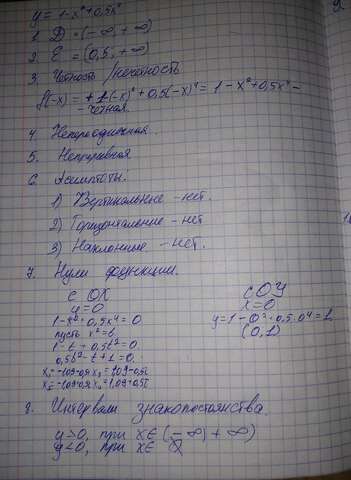 y = 1 - x² + 0,5x⁴
1. D = (-∞, +∞)
2. E = (0,5, +∞)
3. Четность / нечетность
f(-x) = +1(-x)² + 0,5(-x)⁴ = 1 - x² + 0,5x⁴ -
- четная.
4. Непериодичная.
5. Непрерывная
6. Асимптоты:
1) Вертикальные - нет.
2) Горизонтальные - нет
3) Наклонные - нет.
7. Нули функции.
с OX
y = 0
1 - x² + 0,5x⁴ = 0
пусть x² = t.
1 - t + 0,5t² = 0
0,5t² - t + 1 = 0.
с OY
x = 0
y = 1 - 0² + 0,5·0⁴ = 1
(0,1)
8. Интервалы знакопостоянства.
y > 0, при x ∈ (-∞) + ∞)
y < 0, при x ∈ ∅